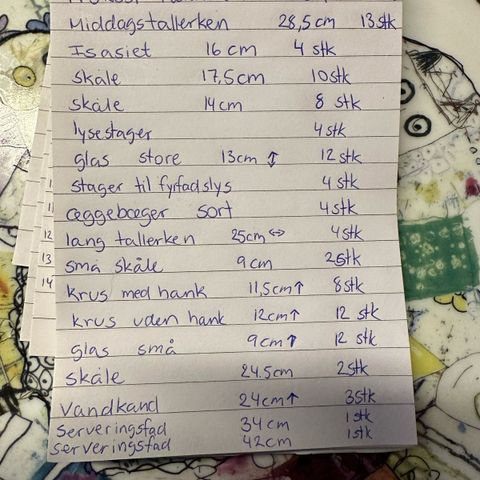 Middagstallerken 28,5cm 13stk
Isasiet 16cm 4 stk
skåle 17,5cm 10stk
skåle 14cm 8 stk
lysestager 4stk
glas store 13cm ↕ 12 stk
stager til fyrfadslys 4stk
æggebæger sort 4stk
lang tallerken 25cm ↔ 4stk
små skåle 9cm 2stk
krus med hank 11,5cm↑ 8stk
krus uden hank 12cm↑ 12 stk
glas små 9cm↑ 12 stk
skåle 24.5cm 2stk
Vandkand 24cm↑ 3stk
Serveringsfad 34cm 1stk
Serveringsfad 42cm 1stk
12
13
14